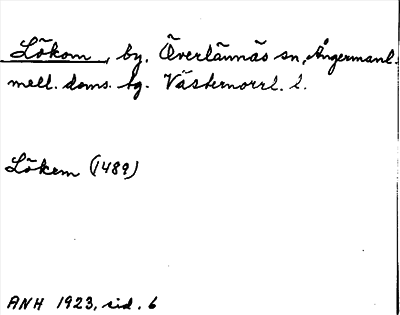 Lökom, by. Överlännäs sn, Ångermanl.
mell. doms. tg. Västernorrl. l.
Lökem (1489)
ANH 1923, sid. 6